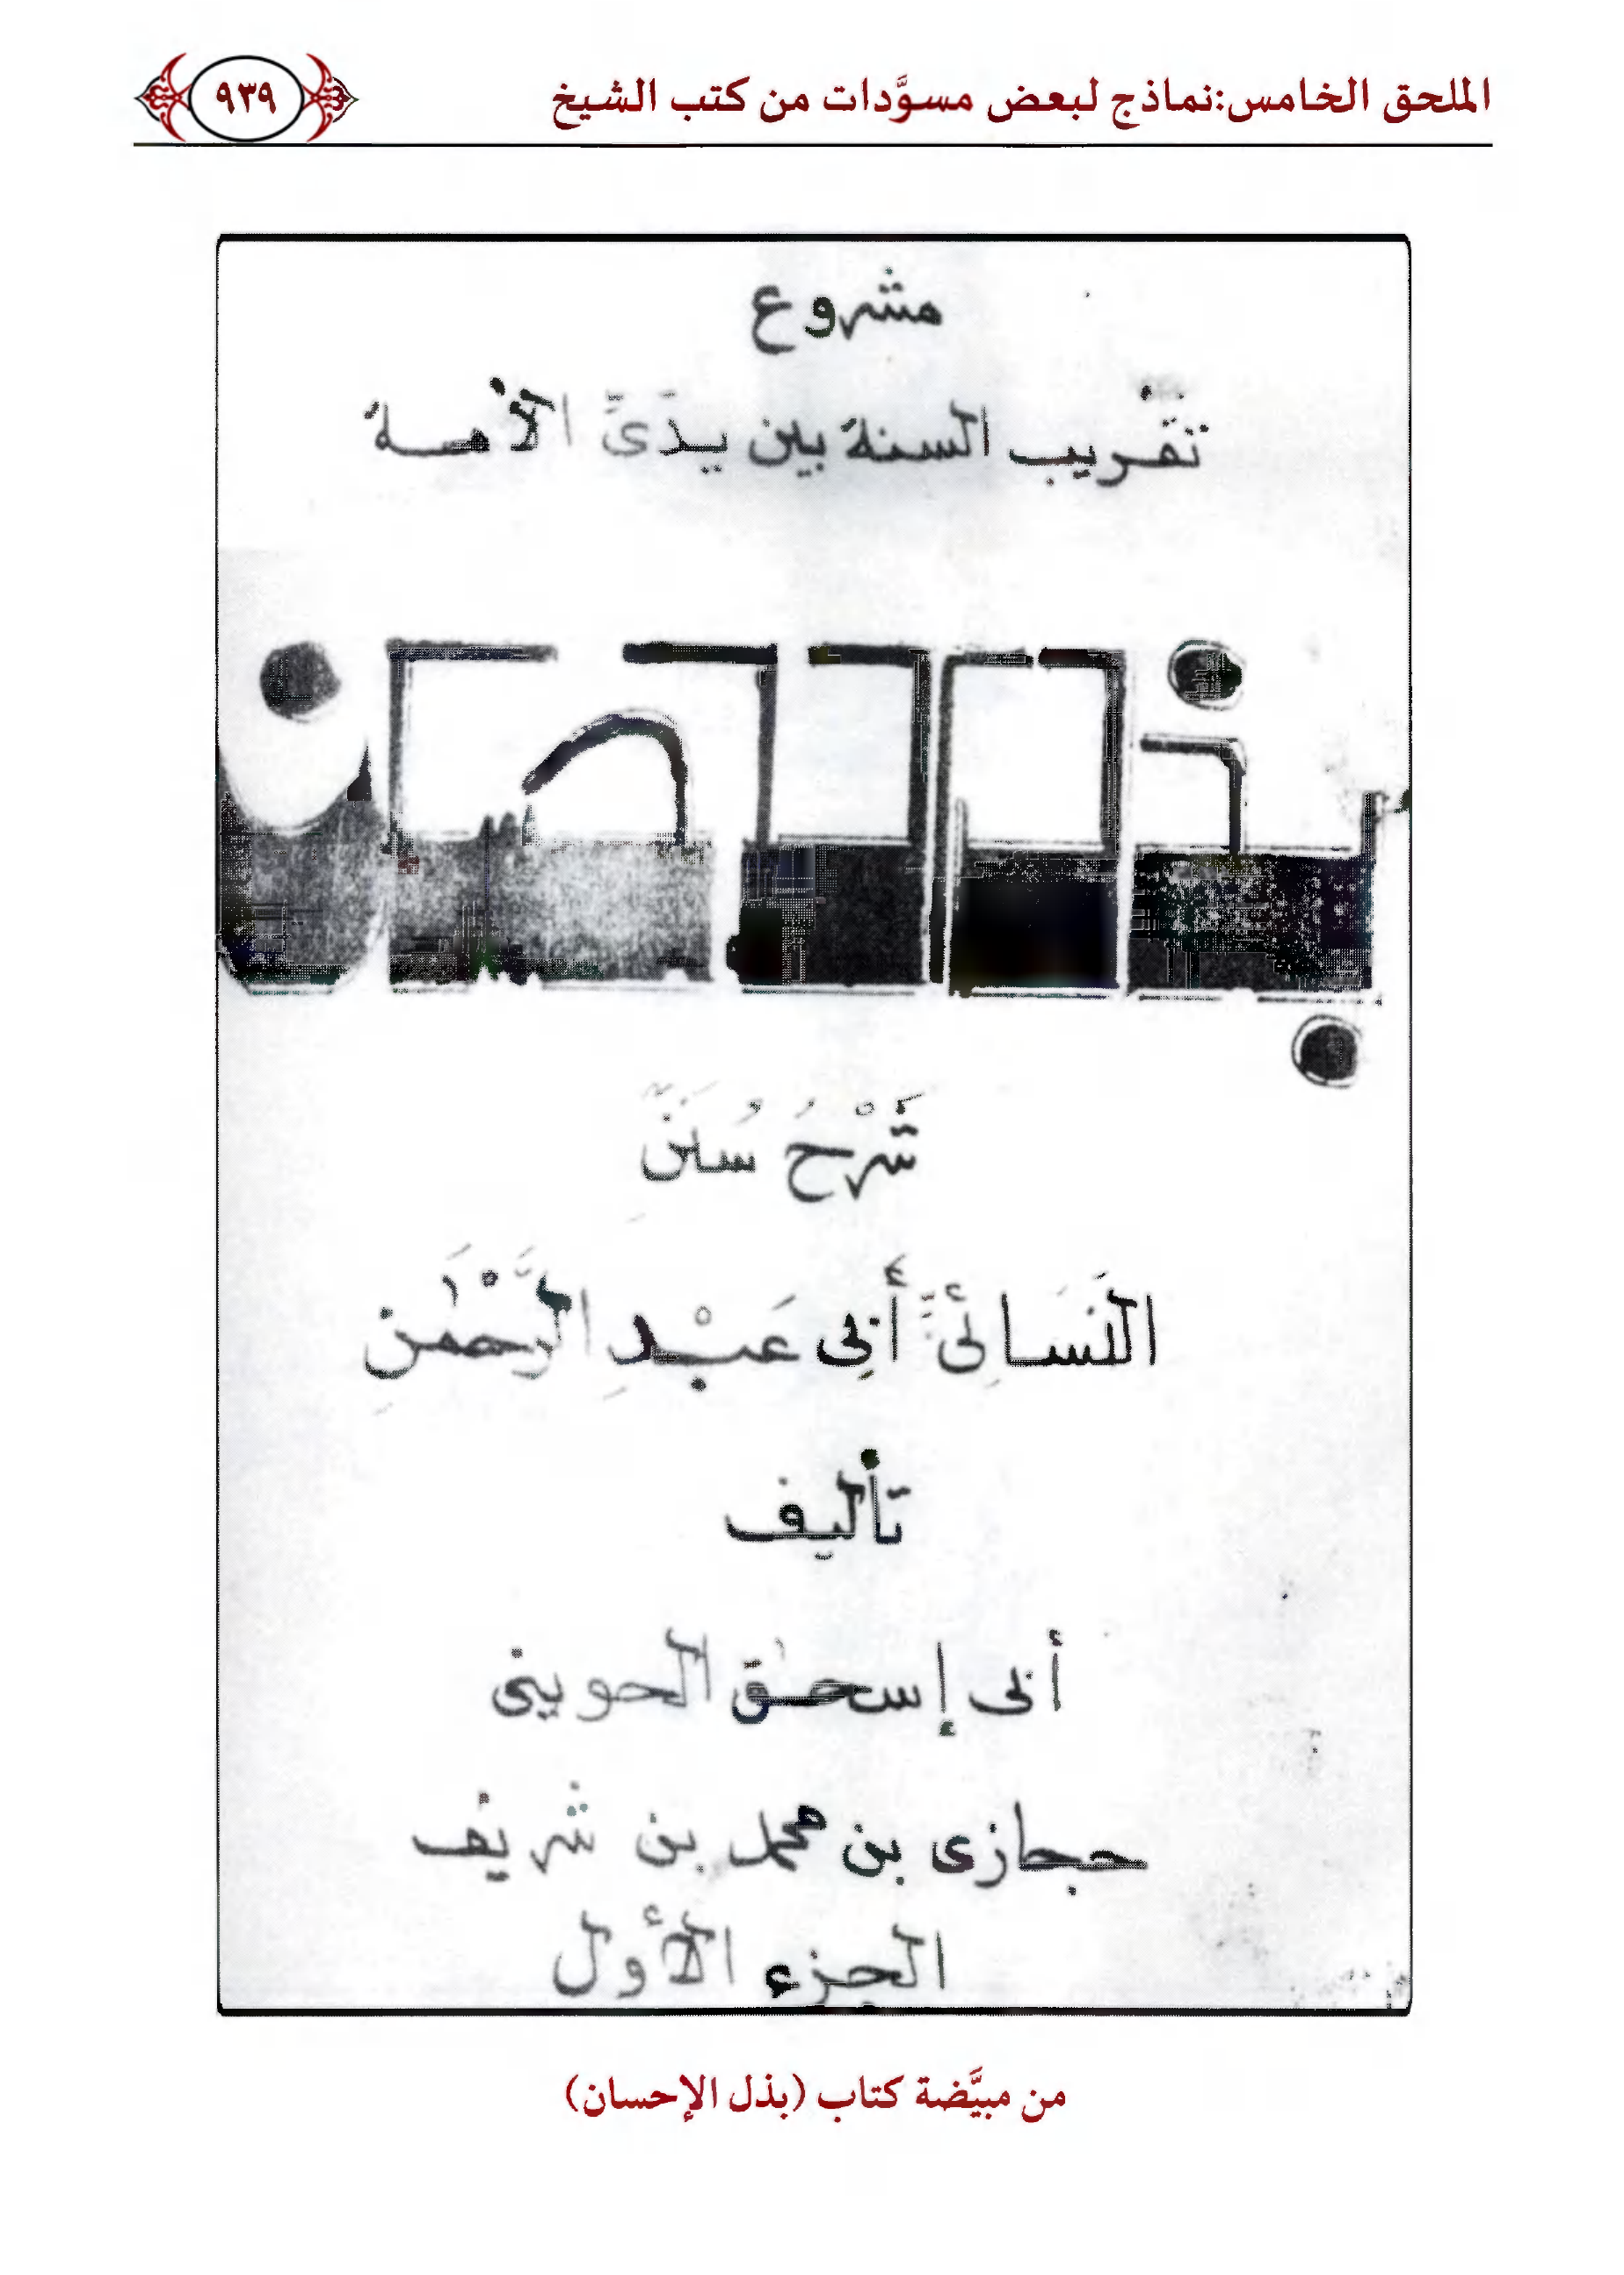 الملحق الخامس:نماذج لبعض مسوَّدات من كتب الشيخ
٩٣٩
مشروع
تقريب السنة بين يدَىَ الأمة
بذل الإحسان
شَرْحُ سُنَنِ
النَسَائِىِّ أَبِى عَبْدِ الرَّحْمٰنِ
تأليف
أبى إسحٰق الحوينى
حجازى بن محمد بن شريف
الجزء الأول
من مبيَّضة كتاب (بذل الإحسان)